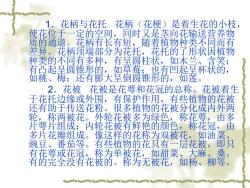 1．花柄与花托　花柄（花梗）是着生花的小枝，
使花位于一定的空间，同时又是茎向花输送营养物
质的通道。花柄有长有短，随着植物种类不同而有
差异。花柄顶端部分为花托，花托的了形状因植物
种类的不同有多种，有呈圆柱状，如木兰、含笑；
有凸起呈圆锥形的，如草莓；也有凹起呈杯状的，
如桃、梅；还有膨大呈倒圆锥形的，如莲。
2．花被　花被是花萼和花冠的总称。花被着生
于花托边缘或外围，有保护作用，有些植物的花被
还有助于传送花粉。很多植物的花被分化成内外两
轮，称两被花。外轮花被多为绿色，称花萼，由多
片萼片组成；内轮花被有鲜艳的颜色，称花冠，由
多片花瓣组成。像这样的花称为双被花，如油菜、
豌豆、番茄等。有些植物的花只有一层花被，即只
有花萼或花冠，称为单被花，如甜菜、大麻、桑。
有的完全没有花被的，称为无被花，如杨、柳等。